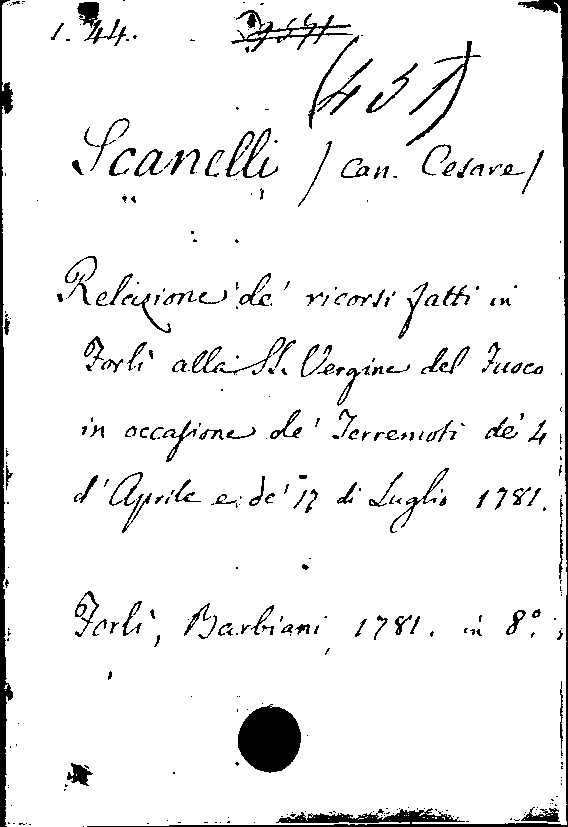 1. 44.
(451)
Scanelli / Can. Cesare /
Relazione de' ricorsi fatti in
Forlì alla SS. Vergine del Fuoco
in occasione de' Terremoti de' 4
d'Aprile e de' 17 di Luglio 1781.
Forlì, Barbiani, 1781. in 8.°